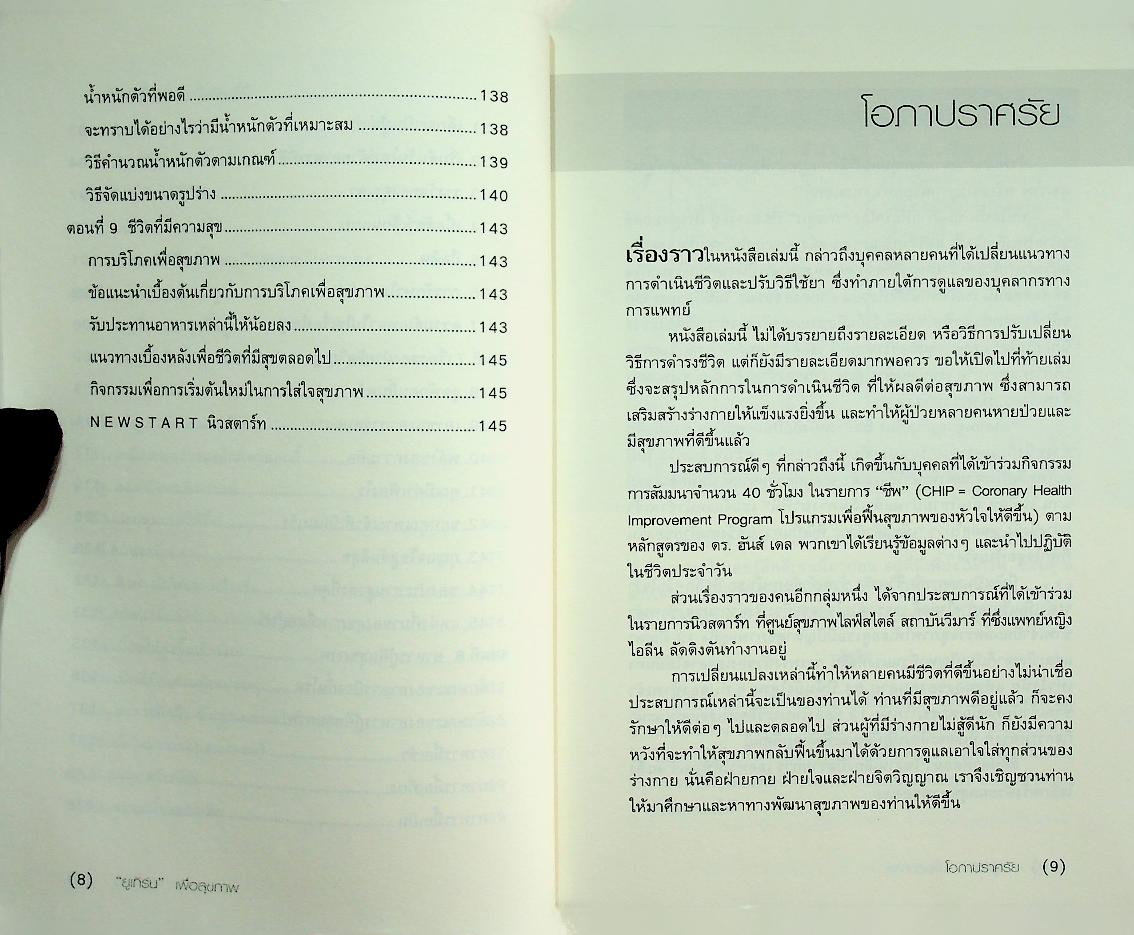 น้ำหนักตัวที่พอดี ........................................................ 138
จะทราบได้อย่างไรว่ามีน้ำหนักตัวที่เหมาะสม ...................... 138
วิธีคำนวณน้ำหนักตัวตามเกณฑ์ ...................................... 139
วิธีจัดแบ่งขนาดรูปร่าง .................................................. 140
ตอนที่ 9 ชีวิตที่มีความสุข ................................................. 143
การบริโภคเพื่อสุขภาพ .................................................. 143
ข้อแนะนำเบื้องต้นเกี่ยวกับการบริโภคเพื่อสุขภาพ ................. 143
รับประทานอาหารเหล่านี้ให้น้อยลง ................................... 143
แนวทางเบื้องหลังเพื่อชีวิตที่มีสุขตลอดไป ........................... 145
กิจกรรมเพื่อการเริ่มต้นใหม่ในการใส่ใจสุขภาพ ..................... 145
NEWSTART นิวสตาร์ท ........................................ 145
(8) "ยูเทิร์น" เพื่อสุขภาพ
โอภาปราศรัย
เรื่องราวในหนังสือเล่มนี้ กล่าวถึงบุคคลหลายคนที่ได้เปลี่ยนแนวทาง
การดำเนินชีวิตและปรับวิธีใช้ยา ซึ่งทำภายใต้การดูแลของบุคลากรทาง
การแพทย์
หนังสือเล่มนี้ ไม่ได้บรรยายถึงรายละเอียด หรือวิธีการปรับเปลี่ยน
วิธีการดำรงชีวิต แต่ก็ยังมีรายละเอียดมากพอควร ขอให้เปิดไปที่ท้ายเล่ม
ซึ่งจะสรุปหลักการในการดำเนินชีวิต ที่ให้ผลดีต่อสุขภาพ ซึ่งสามารถ
เสริมสร้างร่างกายให้แข็งแรงยิ่งขึ้น และทำให้ผู้ป่วยหลายคนหายป่วยและ
มีสุขภาพที่ดีขึ้นแล้ว
ประสบการณ์ดีๆ ที่กล่าวถึงนี้ เกิดขึ้นกับบุคคลที่ได้เข้าร่วมกิจกรรม
การสัมมนาจำนวน 40 ชั่วโมง ในรายการ “ชีพ” (CHIP = Coronary Health
Improvement Program โปรแกรมเพื่อฟื้นสุขภาพของหัวใจให้ดีขึ้น) ตาม
หลักสูตรของ ดร. ฮันส์ เดล พวกเขาได้เรียนรู้ข้อมูลต่างๆ และนำไปปฏิบัติ
ในชีวิตประจำวัน
ส่วนเรื่องราวของคนอีกกลุ่มหนึ่ง ได้จากประสบการณ์ที่ได้เข้าร่วม
ในรายการนิวสตาร์ท ที่ศูนย์สุขภาพไลฟ์สไตล์ สถาบันวีมาร์ ที่ซึ่งแพทย์หญิง
ไอลีน ลัดดิงตันทำงานอยู่
การเปลี่ยนแปลงเหล่านี้ทำให้หลายคนมีชีวิตที่ดีขึ้นอย่างไม่น่าเชื่อ
ประสบการณ์เหล่านี้จะเป็นของท่านได้ ท่านที่มีสุขภาพดีอยู่แล้ว ก็จะคง
รักษาให้ดีต่อๆ ไปและตลอดไป ส่วนผู้ที่มีร่างกายไม่สู้ดีนัก ก็ยังมีความ
หวังที่จะทำให้สุขภาพกลับฟื้นขึ้นมาได้ด้วยการดูแลเอาใจใส่ทุกส่วนของ
ร่างกาย นั่นคือฝ่ายกาย ฝ่ายใจและฝ่ายจิตวิญญาณ เราจึงเชิญชวนท่าน
ให้มาศึกษาและหาทางพัฒนาสุขภาพของท่านให้ดีขึ้น
โอภาปราศรัย (9)